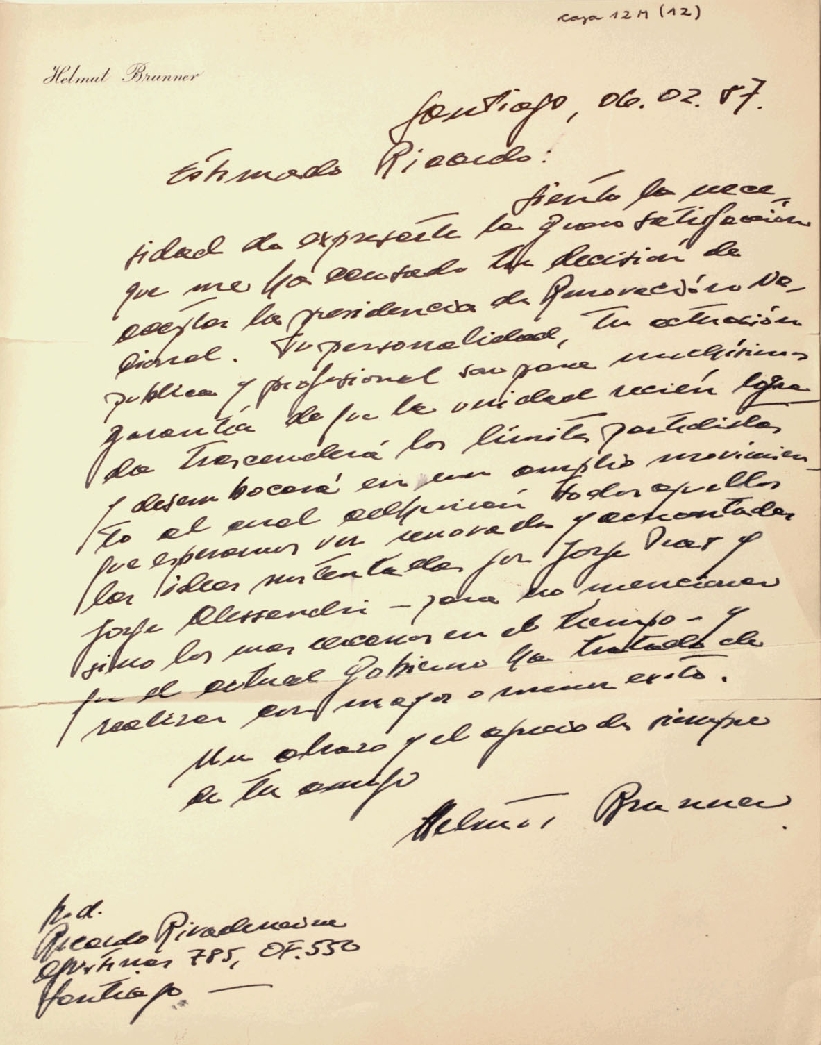 Caja 12M (12)
Helmut Brunner
Santiago, 06.02.87.
Estimado Ricardo:
Siento la nece-
sidad de expresarte la gran satisfacción
que me ha causado tu decisión de
aceptar la presidencia de Renovación Na-
cional. Tu personalidad, tu actuación
pública y profesional son para muchísimos
garantía de que la unidad recién logra-
da trascenderá los límites partidistas
y desembocará en un amplio movimien-
to al cual adherirán todos aquellos
que esperamos ver renovadas y
las ideas sustentadas por Jorge Prat y
Jorge Alessandri - para no mencionar
sino los mas cercanos en el tiempo - y
que el actual Gobierno ha tratado de
realizar con mayor o menor éxito.
Un abrazo y el aprecio de siempre
de tu amigo
Helmut Brunner
p.d.
Ricardo Rivadeneira
Agustinas 785, OF. 550
Santiago